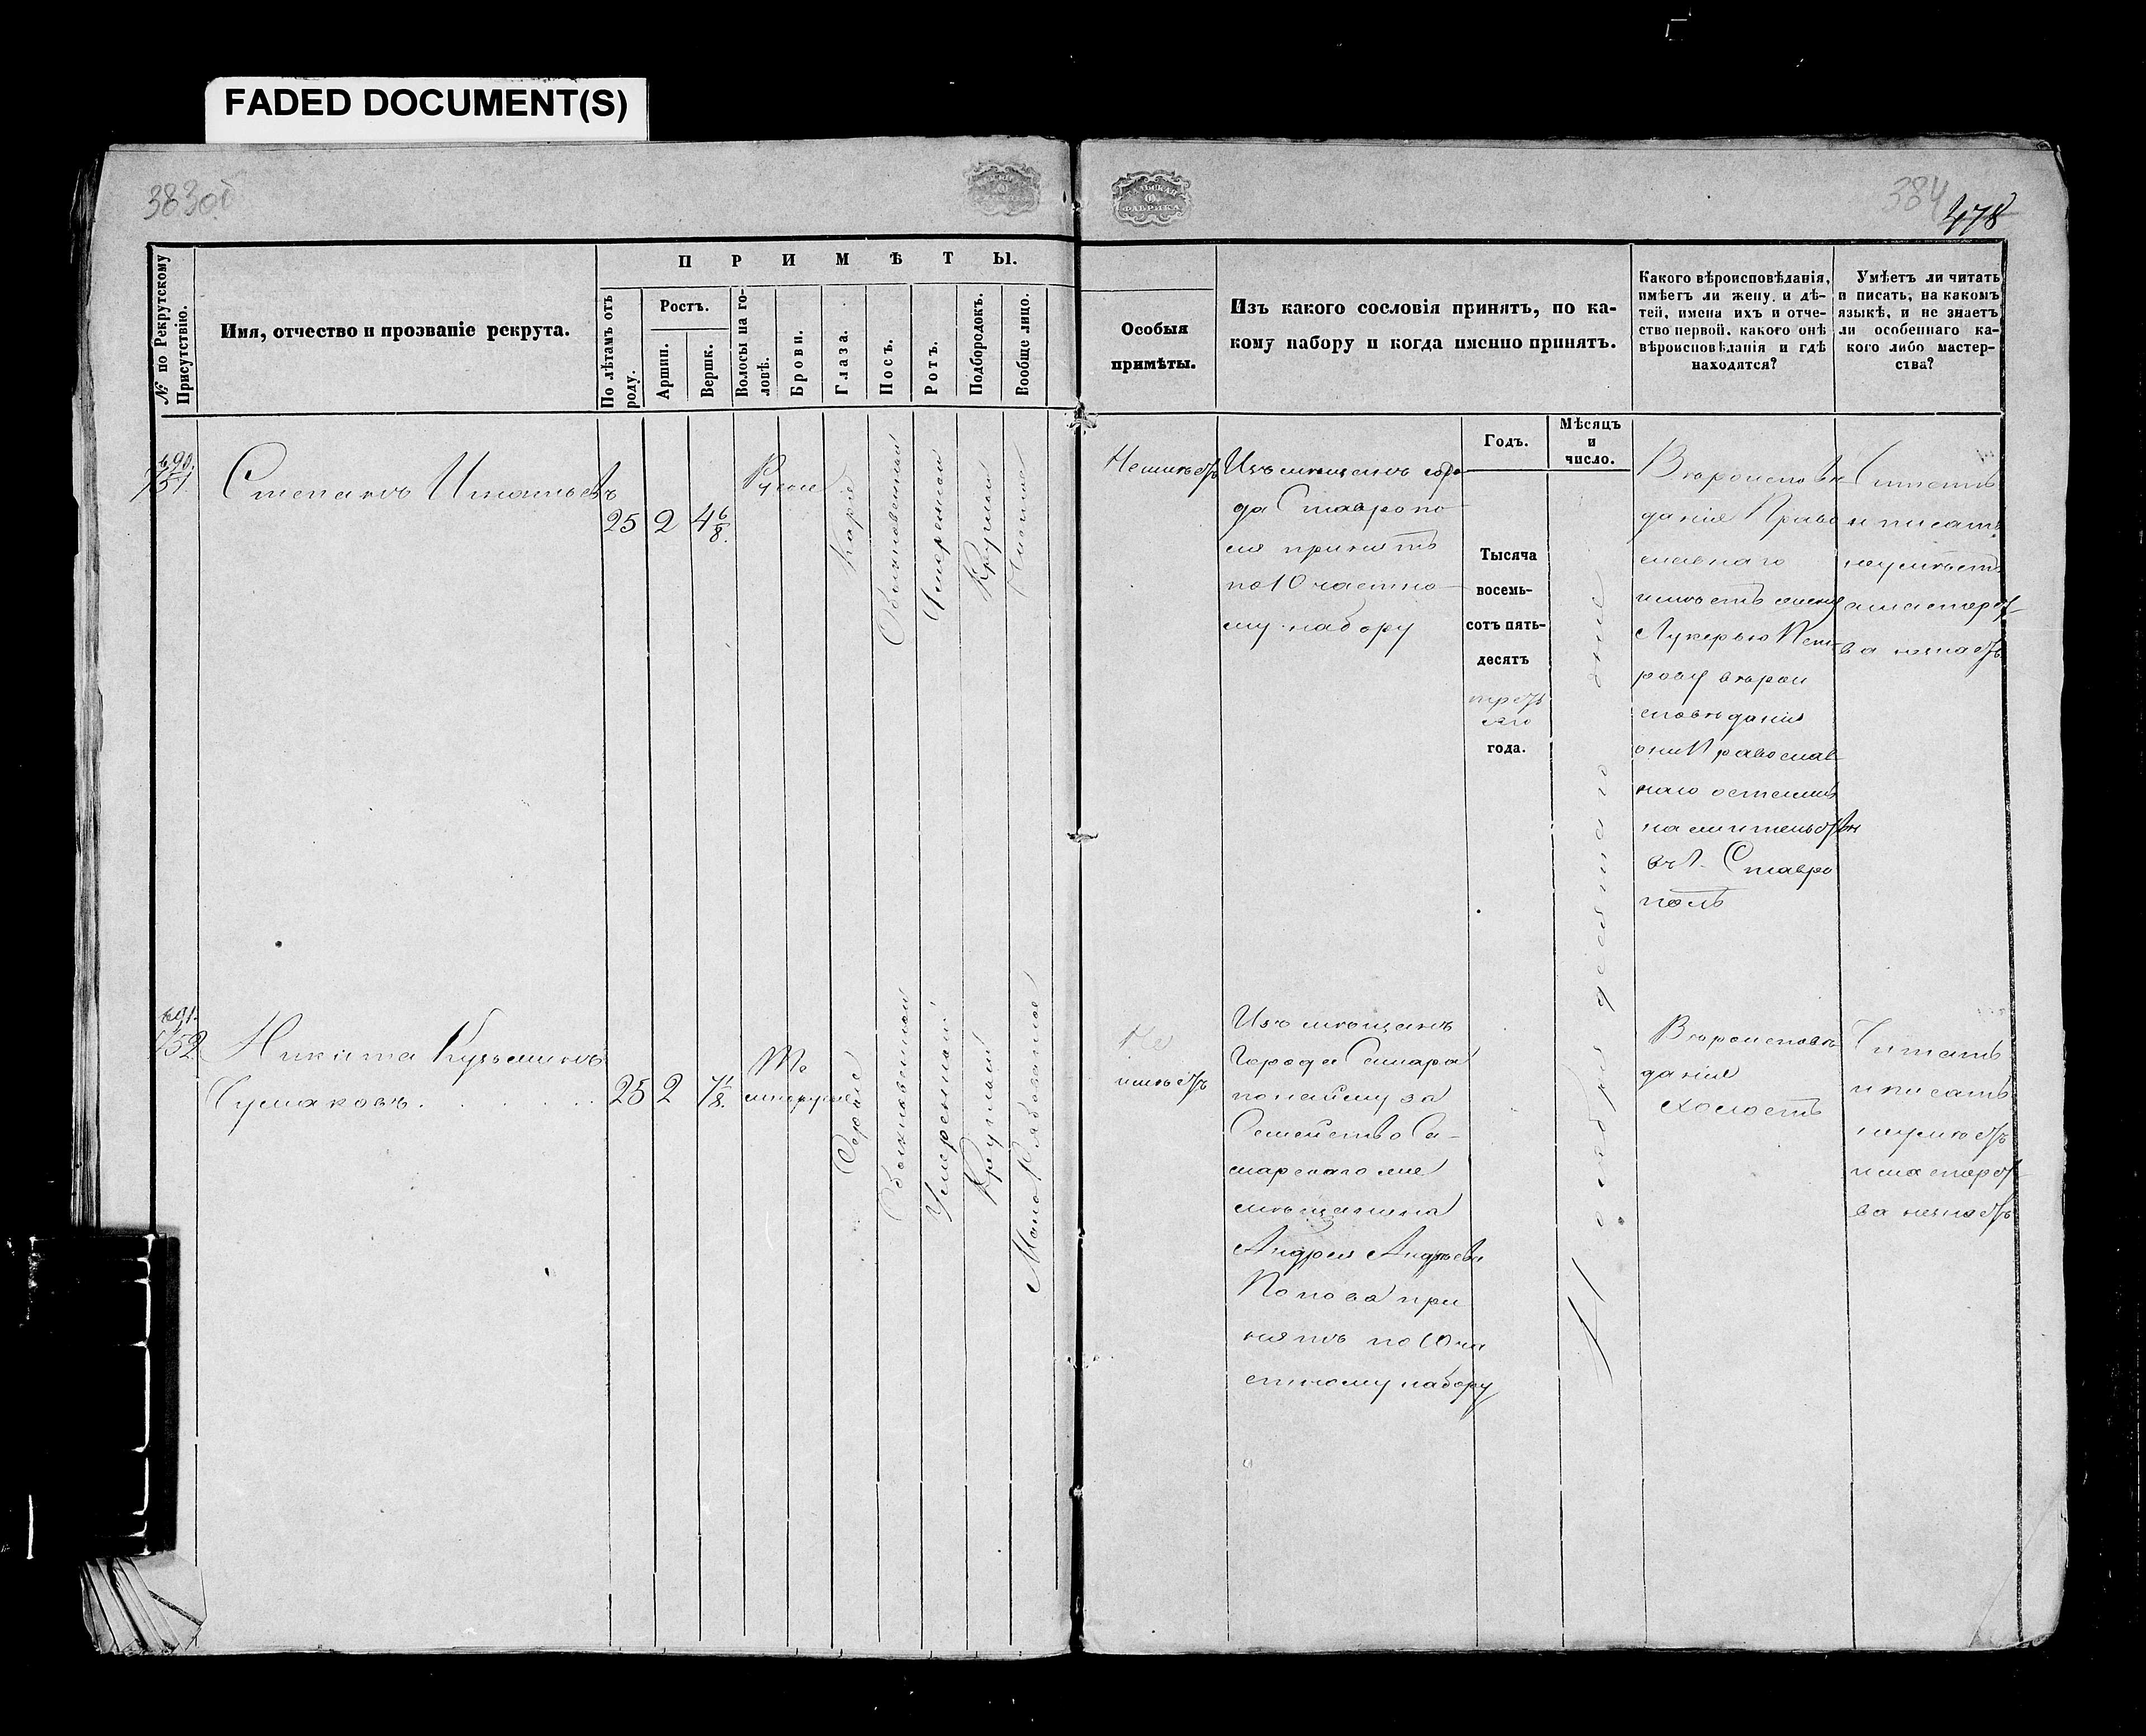 FADED DOCUMENT(S)
383об
384
478
ФАБРИКА
№ по Рекрутскому Присутствію.
Имя, отчество и прозваніе рекрута.
ПРИМѢТЫ.
По лѣтамъ отъ роду.
Ростъ.
Аршин.
Вершк.
Волосы на головѣ.
Брови.
Глаза.
Носъ.
Ротъ.
Подбородокъ.
Вообще лицо.
Особыя
примѣты.
Изъ какого сословія принятъ, по ка-
кому набору и когда именно принятъ.
Годъ.
Мѣсяцъ
и
число.
Какого вѣроисповѣданія,
имѣетъ ли жену, и дѣ-
тей, имена ихъ и отче-
ство первой, какого онѣ
вѣроисповѣданія и гдѣ
находятся?
Умѣетъ ли читать
и писать, на какомъ
языкѣ, и не знаетъ
ли особеннаго ка-
кого либо мастер-
ства?
690
Степанъ Игнатьевъ
25 2 4 6/8
Русые
Каріе
Обыкновенный
Умеренный
Круглый
Чистое
Неимѣетъ
Изъ мещанъ горо
да Ставропо
ля принятъ
по 10 частно
му набору
Тысяча
восемь-
сотъ пять-
десятъ
третьяго
года.
Ноября десятаго дня
Вѣроисповѣ
данія Право
славнаго
имѣетъ жену
Лукерью Пет
рову вѣрои
сповѣданія
они Православ
наго остались
на жительствѣ
въ Г. Ставро
поль
Читать
и писать
неумѣетъ
и мастерст
ва незнаетъ
691
752
Никита Кузьминъ
Чумаковъ
25 2 7 1/8
Темнорусые
Серые
Обыкновенный
Умеренный
Круглый
Мало Рябоватое
Не
имѣетъ
Изъ мѣщанъ
Города Самары
по найму за
Семейство Са-
марскаго ме
мѣщанина
Андрея Андреева
Попова при
нятъ по 10 ча
стному набору
Вѣроисповѣ
данія
холостъ
Читать
и писать
неумѣетъ
и мастерст
ва незнаетъ